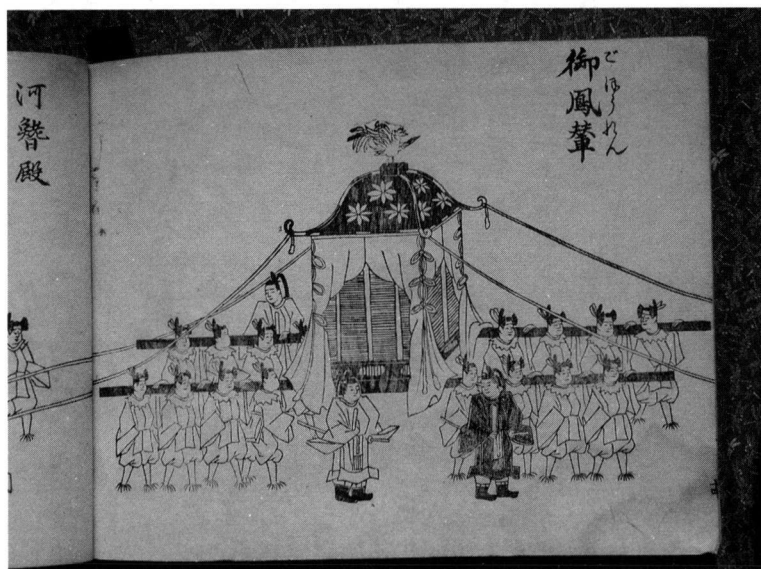 御鳳輦
ごほうれん
河鰭殿